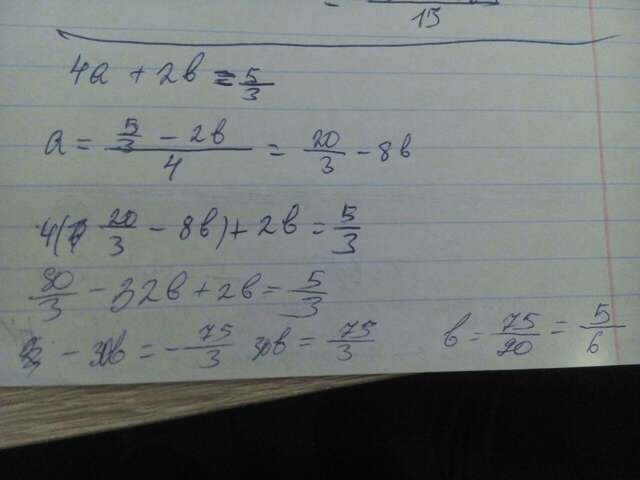 15
4a + 2b = 5/3
a = (5/3 - 2b)/4 = 20/3 - 8b
4(20/3 - 8b) + 2b = 5/3
80/3 - 32b + 2b = 5/3
- 30b = - 75/3 30b = 75/3 b - 75/90 = 5/6